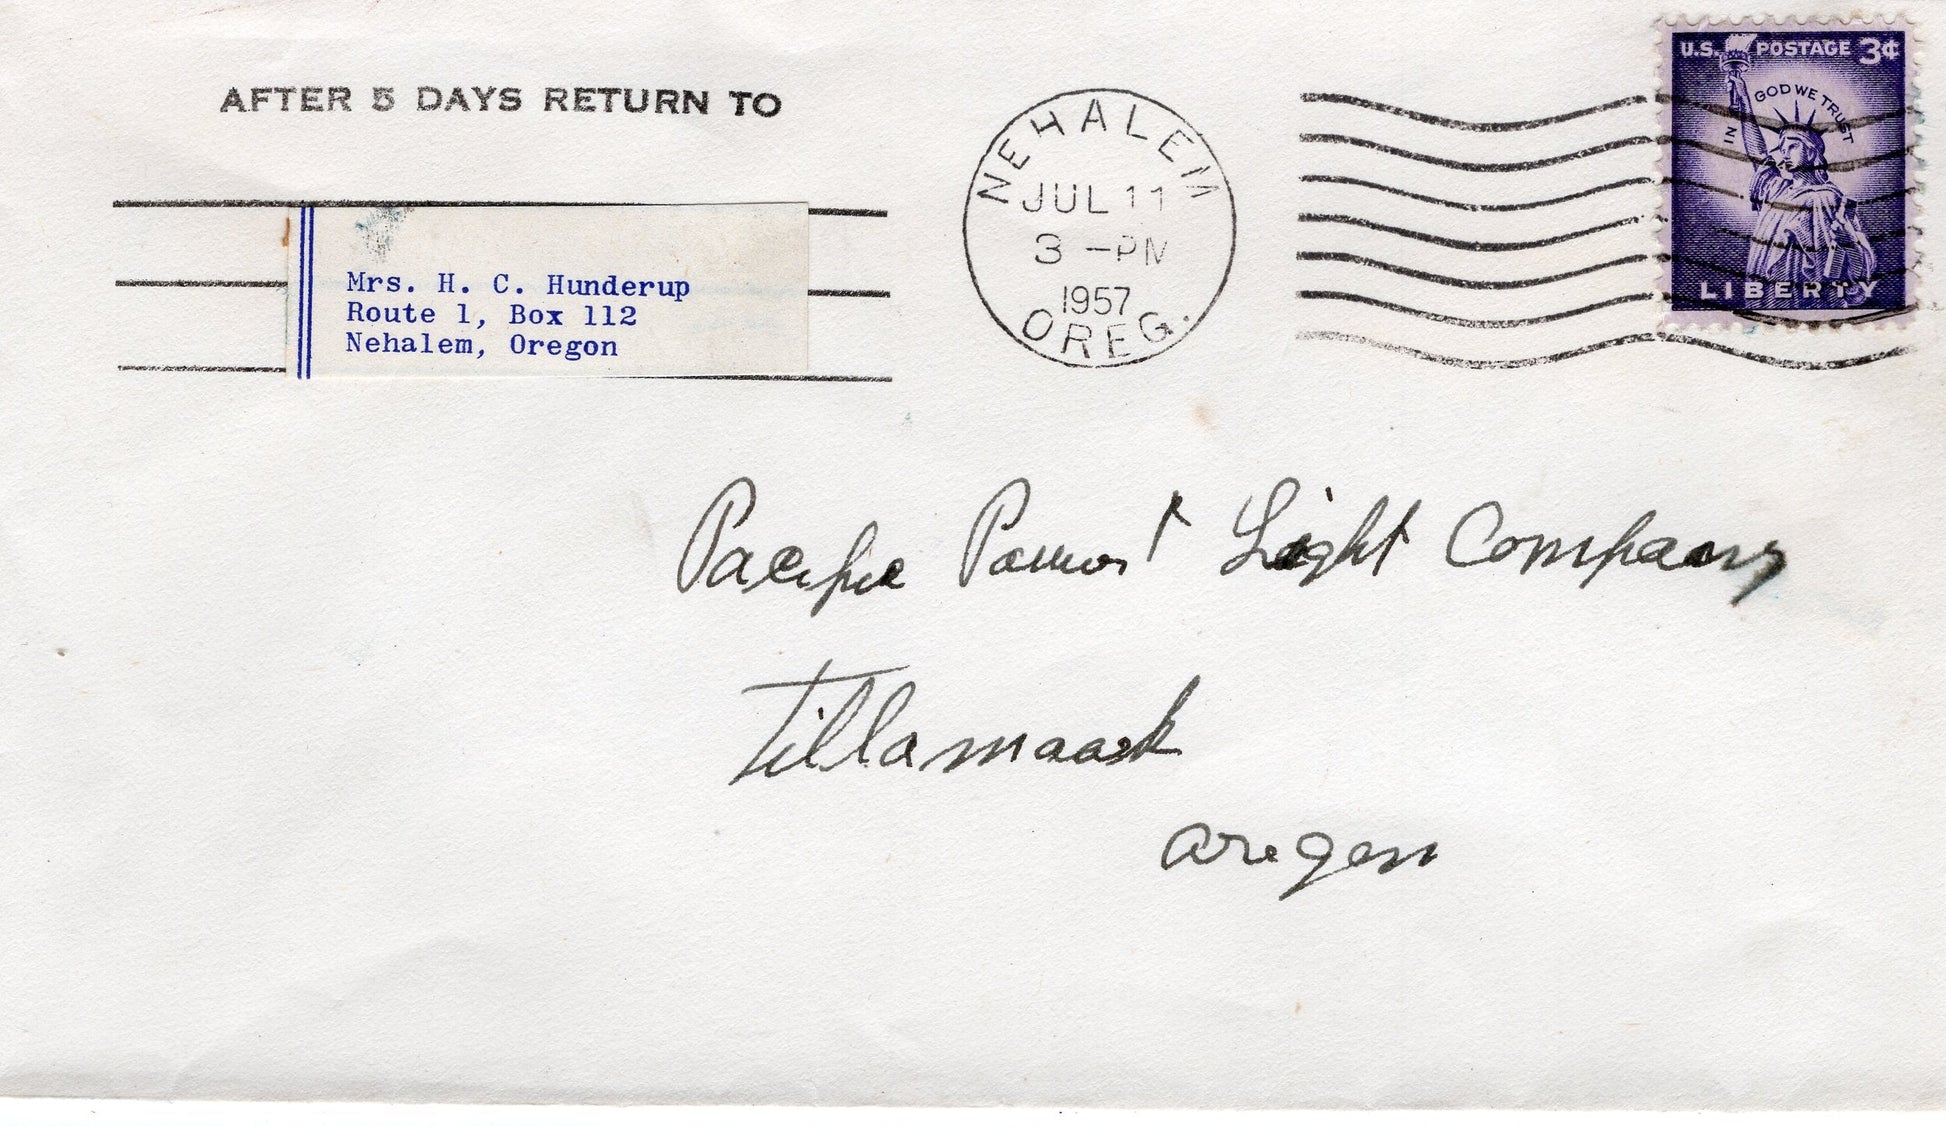 AFTER 5 DAYS RETURN TO
Mrs. H. C. Hunderup
Route 1, Box 112
Nehalem, Oregon
NEHALEM
JUL 11
3 -PM
1957
OREG.
U.S. POSTAGE 3¢
IN GOD WE TRUST
LIBERTY
Pacific Power & Light Company
Tillamook
Oregon